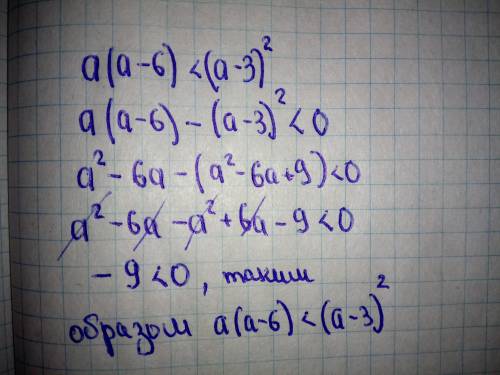 a(a-6)<(a-3)²
a(a-6)-(a-3)²<0
a²-6a-(a²-6a+9)<0
a²-6a-a²+6a-9<0
-9<0, таким
образом a(a-6)<(a-3)²